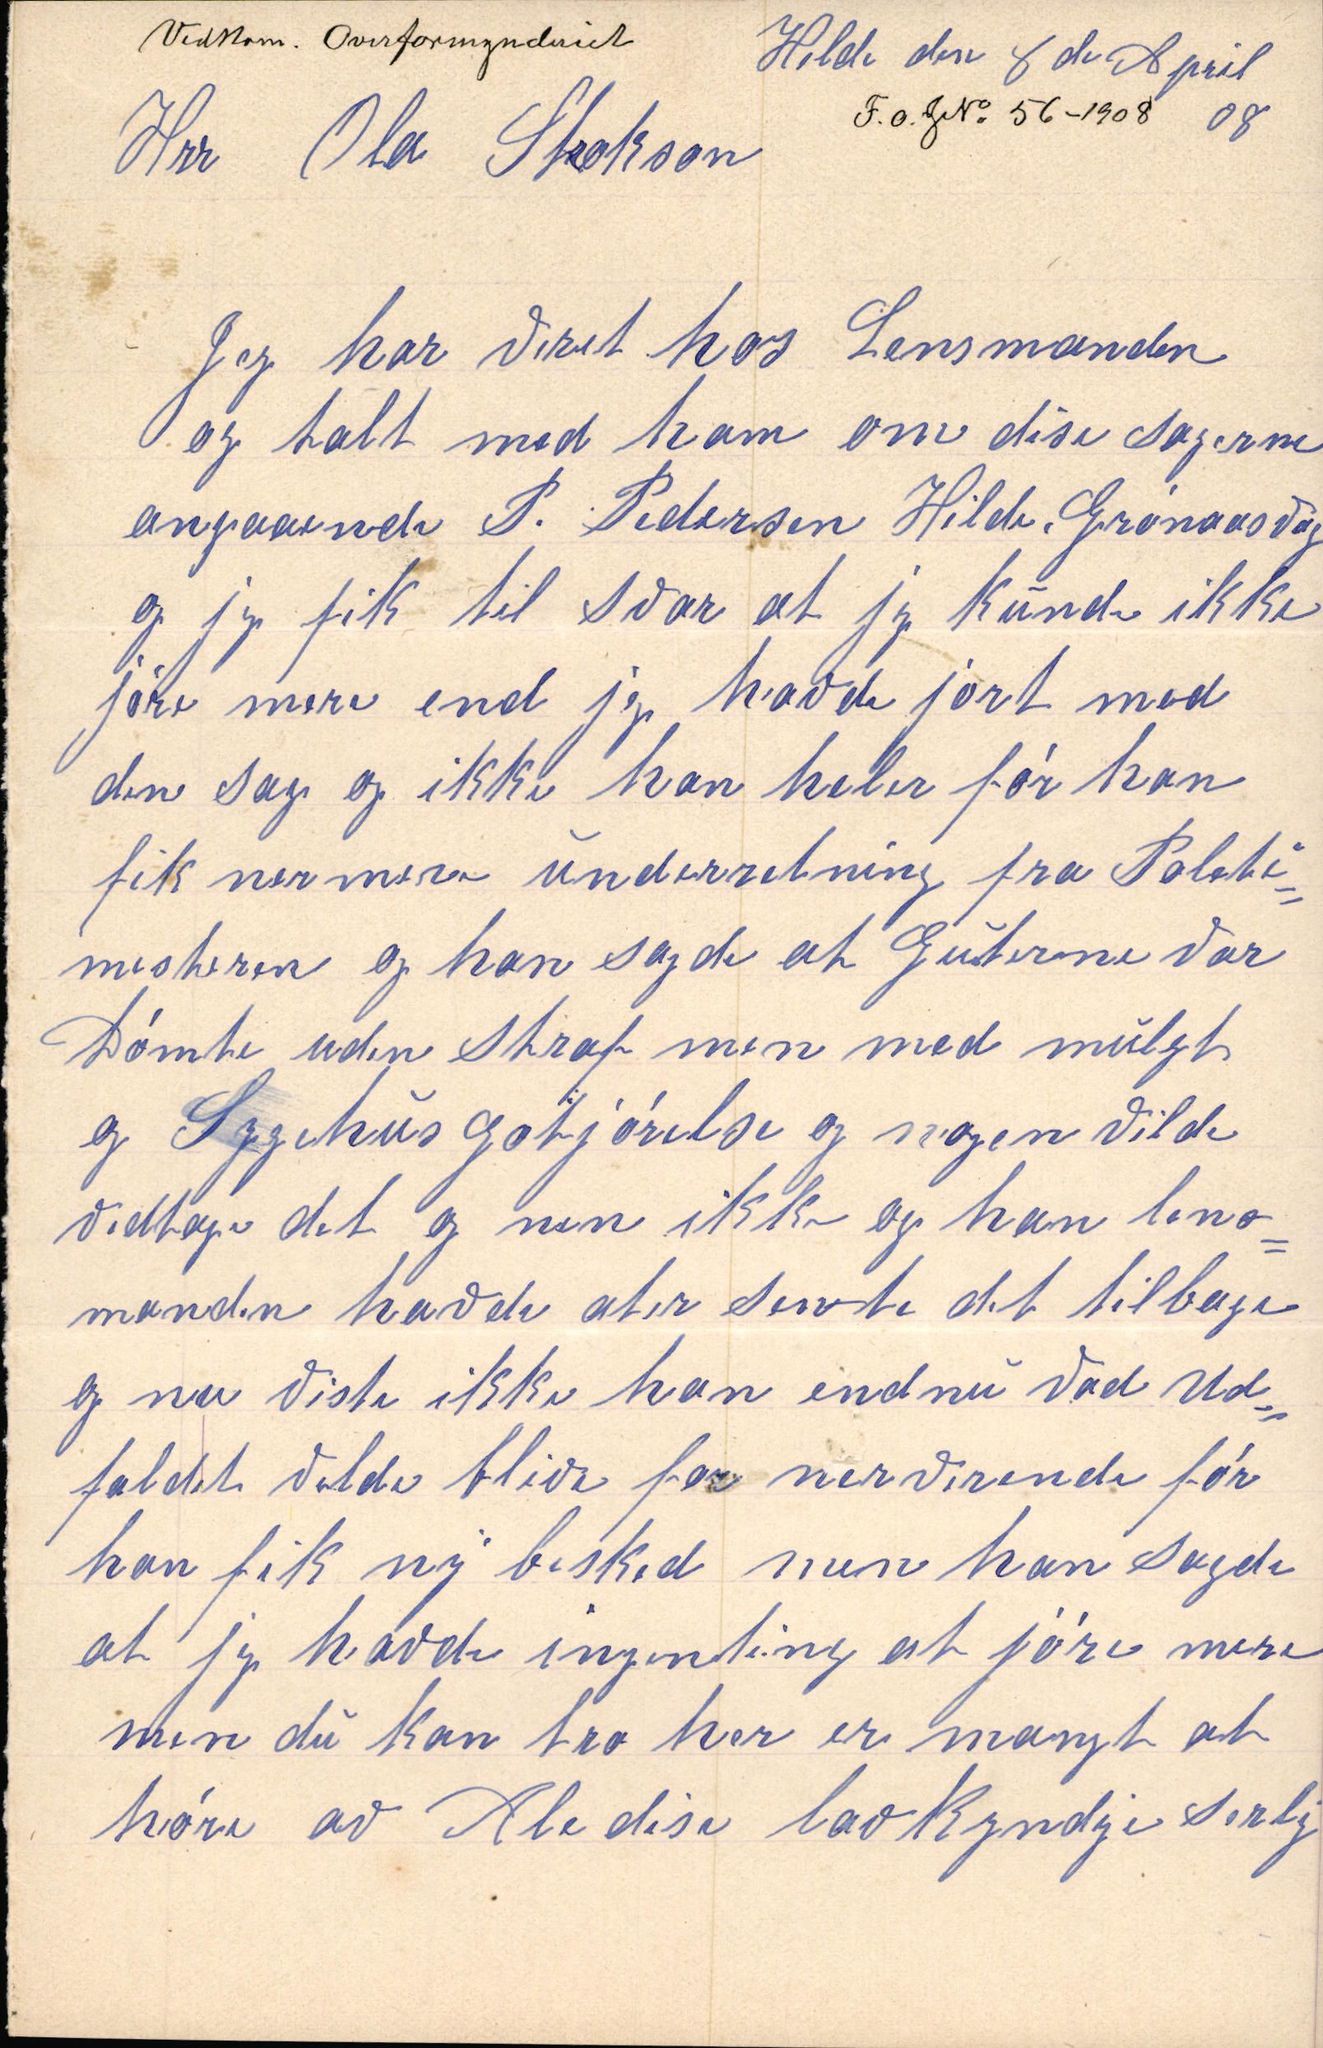 Vedkom. Overformynderiet
Hilde den 8 de April
F. o. J No. 56-1908 08
Hrr Ola Skokson
Jeg har veret hos Lensmanden
og talt med ham om dise sagerne
angaaende P. Pedersen Hilde. Grónaasvåg
og jeg fik til svar at jeg kunde ikke
jóre mere end jeg havde jort med
den sag og ikke han heler fór han
fik nermere underretning fra Poleti=
mesteren og han sagde at Guterne var
Dómte uden straf men med mulgt
og Sygehus Gotjórelse og nogen vilde
vedtage det og nen ikke og han lens=
manden havde ater sente det tilbage
og nu viste ikke han endnu vad Ud=
faldet vilde blive for nerverende fór
han fik ny besked men han sagde
at jeg havde ingenting at jóre mere
men du kan tro her er mangt at
hóre av Ale dise lavkyndje serlig